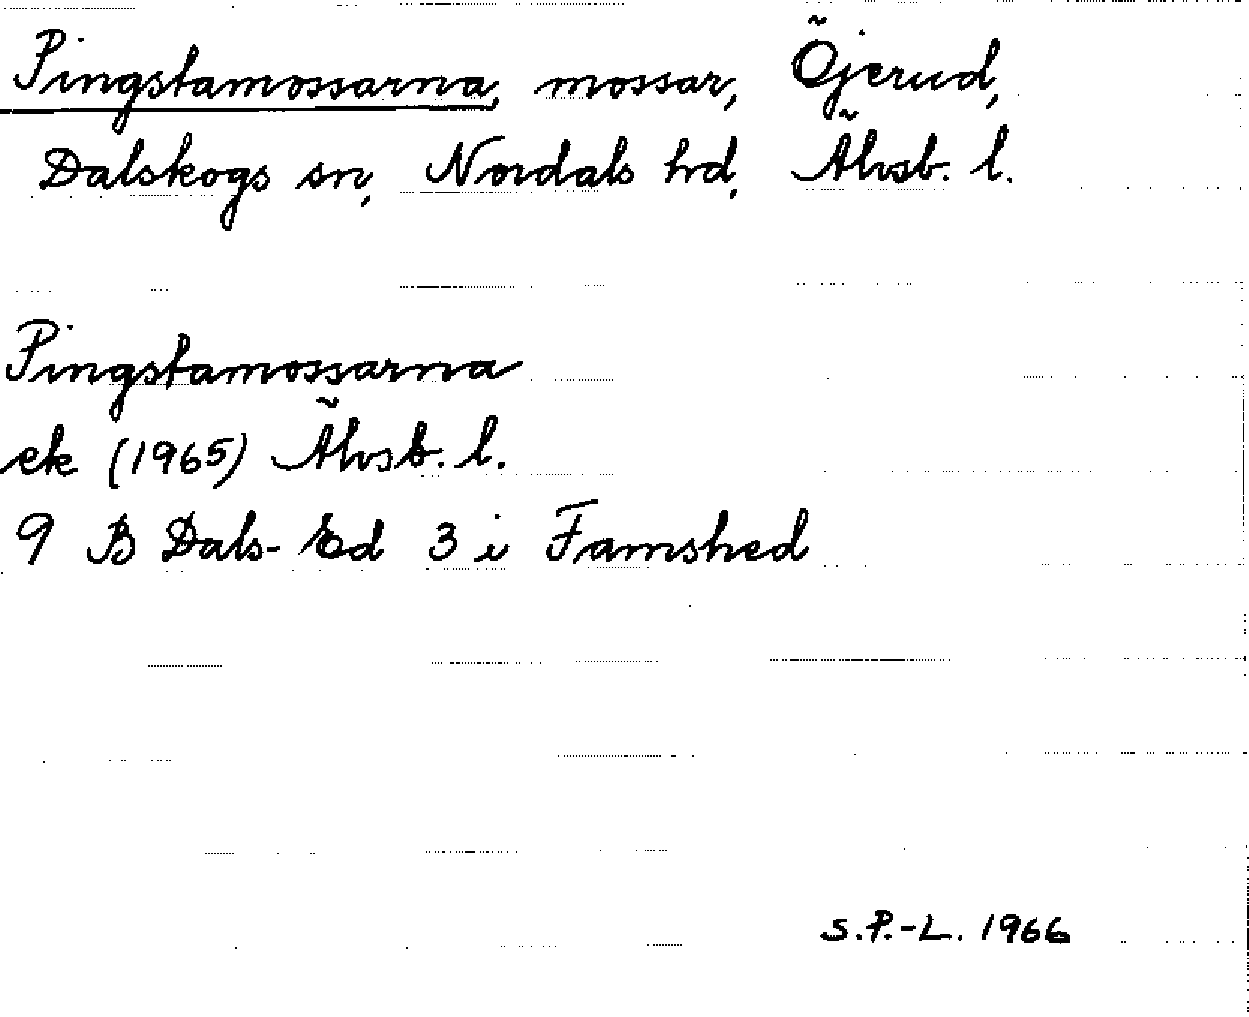 Pingstamossarna, mossar, Öjerud,
Dalskogs sn, Nordals hd, Älvsb. l.
Pingstamossarna
ek (1965) Älvsb. l.
9 B Dals-Ed 3 i Famshed
S.P.-L. 1966